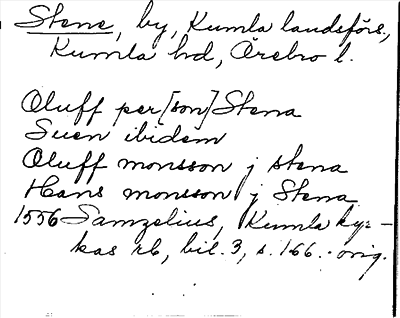 Stene, by, Kumla landsförs.,
Kumla hd, Örebro l.
Oluff per[son] Stena
Suen ibidem
Oluff monsson j stena
Hans monsson j Stena
1556 Samzelius, Kumla kyr-
kas rb, bil. 3, s. 166. orig.